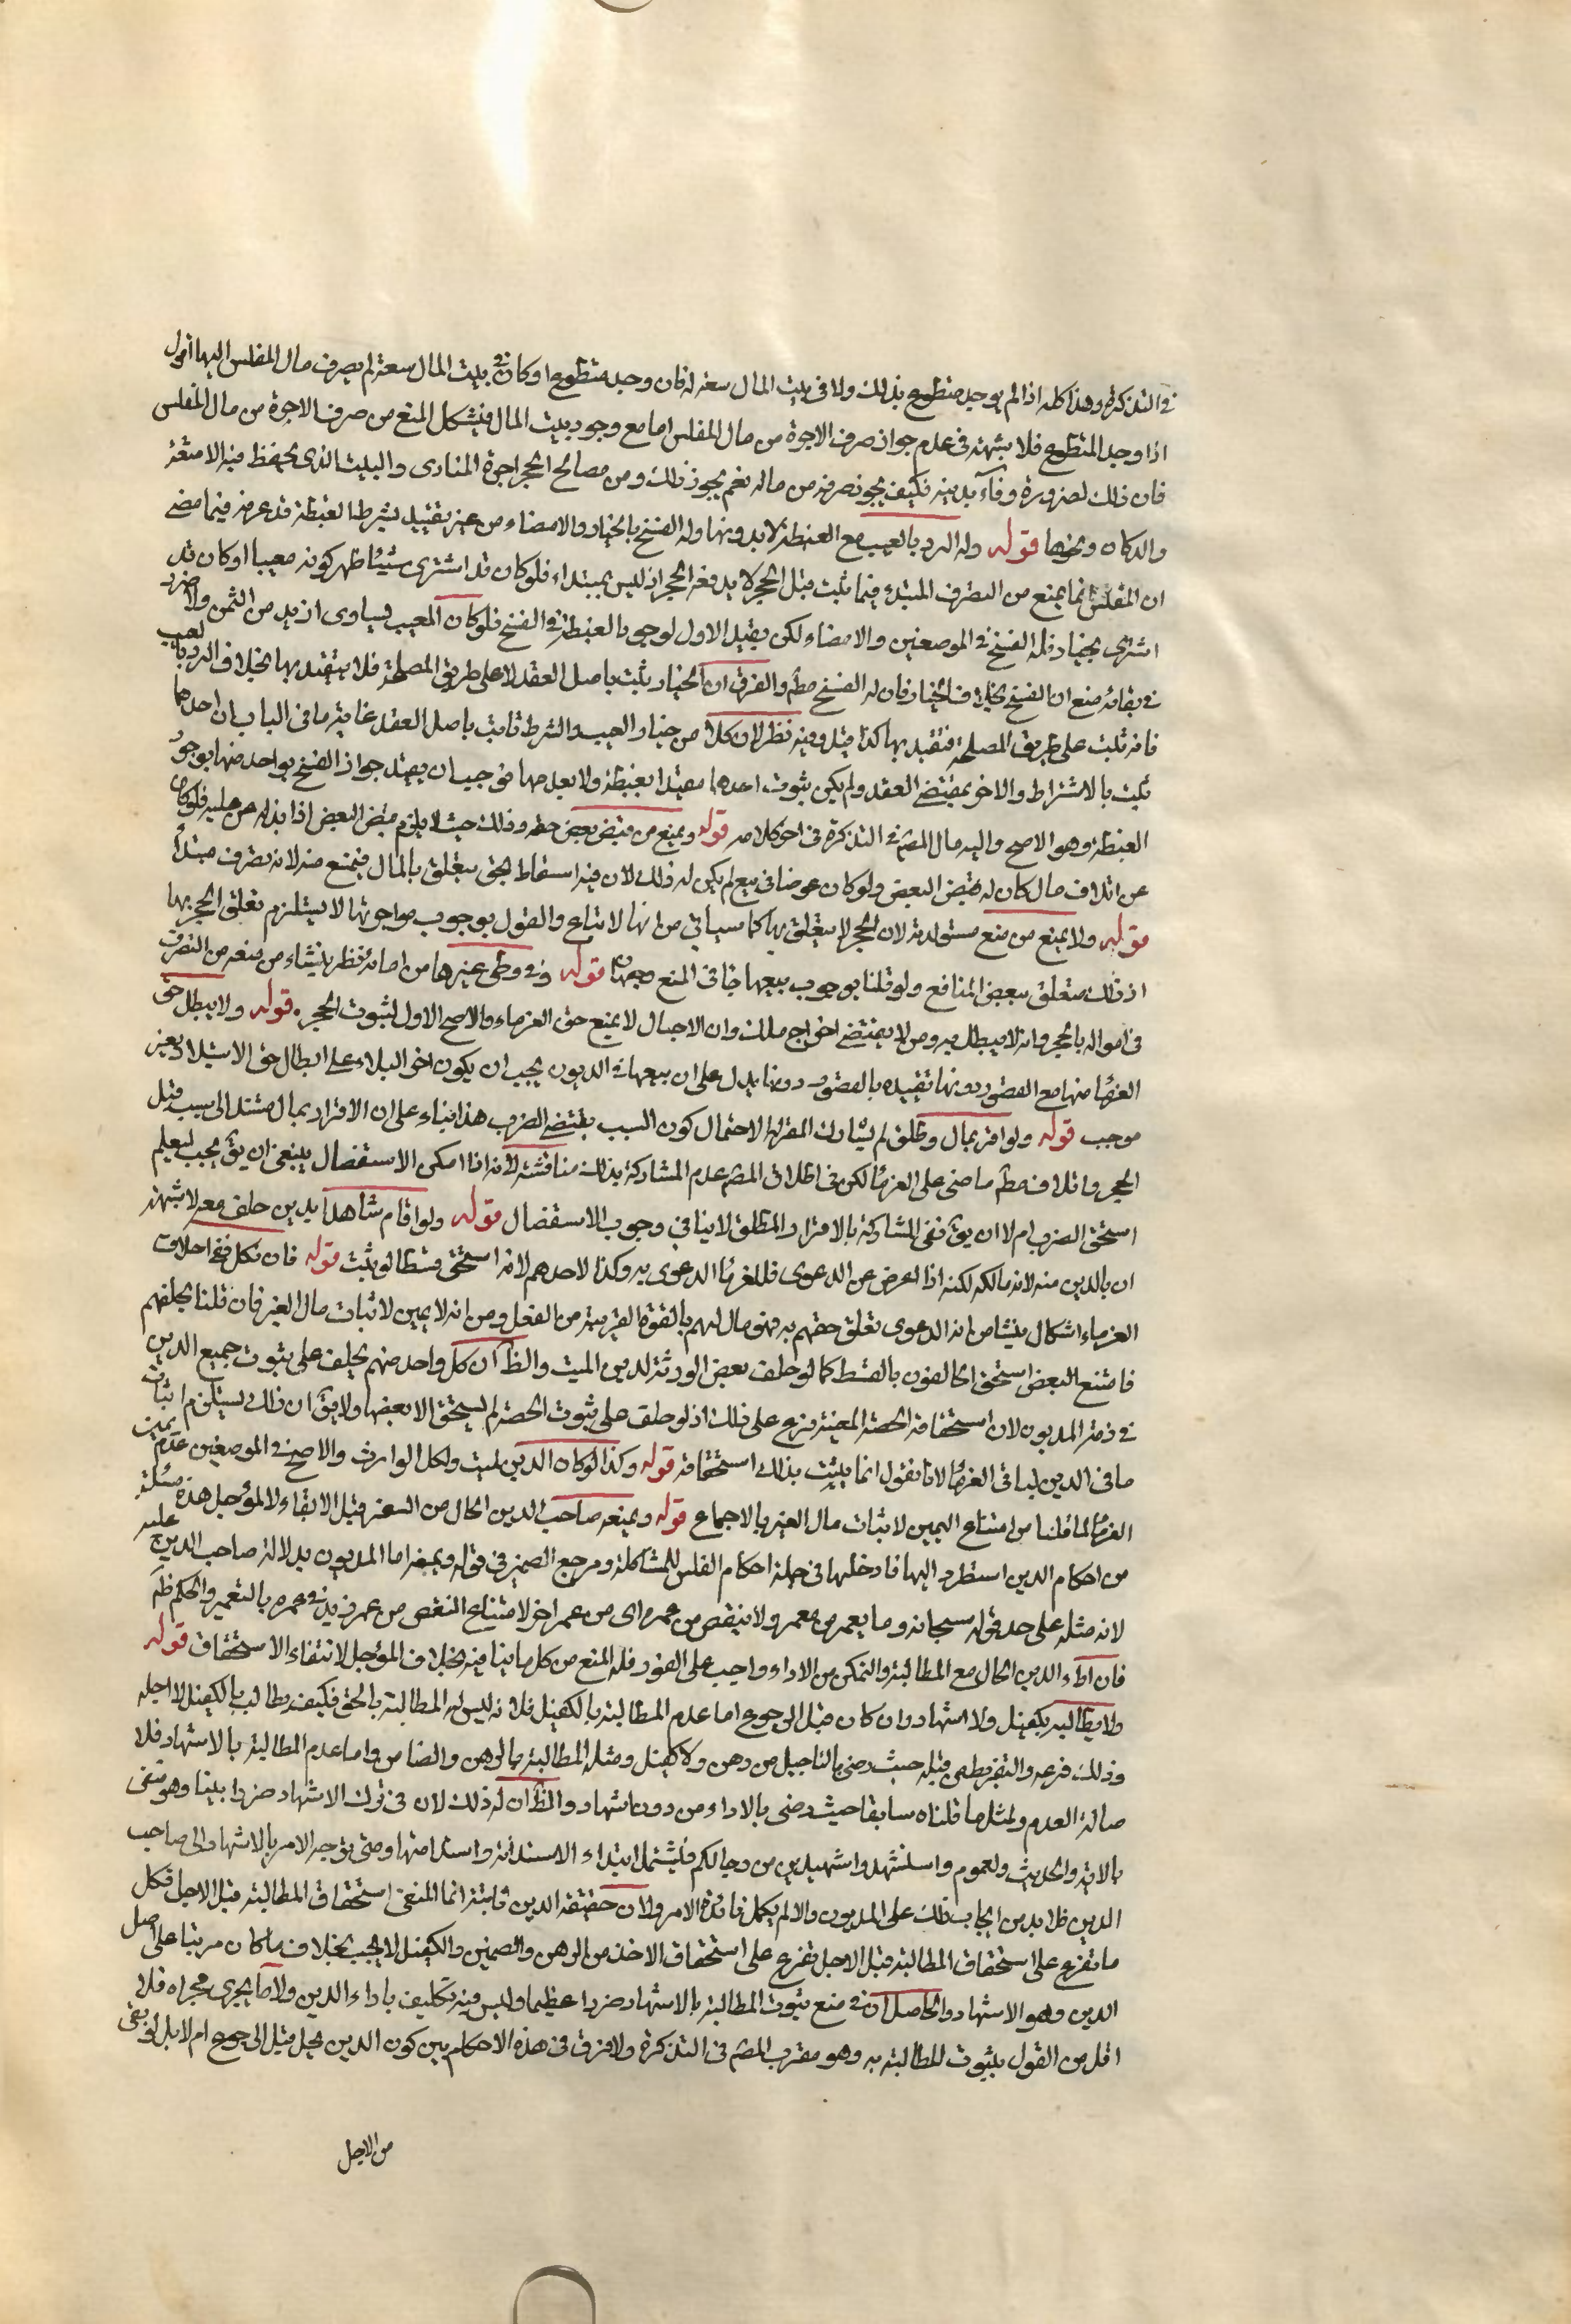 في التذكرة وهذا كله اذا لم يوجد متطوع بذلك ولا في بيت المال سعة له فان وجد متطوع او كان في بيت المال سعة لم يصرف مال المفلس اليها اقول
اذا وجد المتطوع فلا شبهة في عدم جواز صرف الاجرة من مال المفلس اما مع وجود بيت المال فيشكل المنع من صرف الاجرة من مال المفلس
فان ذلك لضرورة وفاء دينه فكيف يجوز صرفه من ماله نعم يجوز ذلك ومن مصالح الحجر اجرة المنادى والبيت الذى يحفظ فيه الامتعة
والدكان ونحوها قوله وله الرد بالعيب مع الغبطة لا بدونها وله الفسخ بالخيار والامضاء من غير تقييد بشرط الغبطة قد عرفه فيما مضى
ان المفلس انما يمنع من التصرف المبتدء فيما ثبت قبل الحجر لا يدفعه الحجر اذ ليس بمبتداء فلو كان قد اشترى شيئا ظهر كونه معيبا او كان قد
اشترى بخيار فله الفسخ في الموضعين والامضاء لكن يقيد الاول لوجوبا لغبطة في الفسخ فلو كان المعيب يساوى ازيد من الثمن ولا ضرر
في بقائه منع ان الفسخ بخلاف الخيار فان له الفسخ مطم والفرق ان الخيار يثبت باصل العقد لا على طريق المصلحة فلا يتقيد بها بخلاف الرد بالعيب
فانه ثبت على طريق المصلحة فتقيد بها كذا قيل وفيه نظر لان كلا من خيار العيب والشرط ثابت باصل العقد غاية ما في الباب ان احدهما
ثبت بالاشتراط والاخر بمقتضى العقد ولم يكن ثبوت احدهما مقيدا بغبطة ولا بعدمها فوجب ان يقيد جواز الفسخ بواحد منهما بوجود
الغبطة وهو الاصح واليه مال المصم في التذكرة في اخر كلامه قوله ويمنع من قبض بعض حقه وذلك حيث لا يلزم قبض البعض اذا بذله من عليه فلو كان
عن اتلاف مال كان له قبض البعض ولو كان عوضا في بيع لم يكن له ذلك لان فيه اسقاط لحق يتعلق بالمال فيمنع منه لانه تصرف مبتدأ
قوله ولا يمنع من منع مستولدته لان الحجر لا يتعلق بها كما سياتي من انها لا تباع والقول بوجوب مواجرتها لا يستلزم تعلق الحجر بها
اذ ذلك متعلق ببعض المنافع ولو قلنا بوجوب بيعها جاء في المنع وجهان قوله وفي وطى غيرها من امائه نظر ينشاء من منعه من التصرف
في امواله بالحجر وانه لا يبطل به ومن لا يقتضى اخراج ملك وان الاحبال لا يمنع حق الغرماء والاصح الاول لثبوت الحجر قوله ولا يبطل حق
الغرماء منها مع القصور دونها تقييده بالقصور دونها يدل على ان بيعها في الديون يجب ان يكون اخر البلاء على ابطال حق الاستيلاد بغير
موجب قوله ولو اقر بمال وطلق لم يشارك المقر له لاحتمال كون السبب يقتضى الضرب هذا بناء على ان الاقرار بمال مستند الى سبب قبل
الحجر واتلاف مطم ماضى على الغرماء لكن في اطلاق المصم عدم المشاركة بذلك مناقشة لانه اذا امكن الاستفصال ينبغى ان يق يجب ليعلم
استحق الضرب ام لا ان يق نفى المشاركة بالاقرار المطلق لا ينافى وجوب الاستفصال قوله ولو اقام شاهدا بدين حلف معه لا شبهة
ان بالدين منه لانه مالكه لكنه اذا اعرض عن الدعوى فللغرماء الدعوى به وكذا لاحدهم لانه استحق قسطا لو ثبت قوله فان نكل ففي احلاف
الغرماء اشكال ينشا من انه الدعوى تعلق حقهم به فهو مال لهم بالقوة القريبة من الفعل ومن انه لا يمين لاثبات مال الغير فان قلنا بحلفهم
فامتنع البعض استحق الحالفون بالقسط كما لو حلف بعض الورثة لدين الميت والظ ان كل واحد منهم يحلف على ثبوت جميع الدين
في ذمة المديون لان استحقاقه الحصة المعينة فرع على ذلك اذ لو حلف على ثبوت الحصة لم يستحق الا بعضها ولا يق ان ذلك يستلزم اثبات
ما في الدين لباقي الغرماء لانا نقول انما يثبت بذلك استحقاقه قوله وكذا لو كان الدين لميت ونكل الوارث والاصح في الموضعين عدم يمين
الغرماء لما قلنا من امتناع اليمين لاثبات مال الغير بالاجماع قوله ويمنعه صاحب الدين الحال من السفر قبل الايفاء لا المؤجل هذه مسئلة
من احكام الدين استطرد اليها فادخلها في جملة احكام الفلس للمشاكلة ومرجع الضمير في قوله ويمنعه اما المديون بدلالة صاحب الدين عليه
لانه مثله على حد قوله سبحانه وما يعمر من معمر ولا ينقص من عمره اى من عمر اخر لامتناع النقص من عمر من زيد في عمره بالتعمير والحكم ظم
فان اداء الدين الحال مع المطالبة والتمكن من الاداء واجب على الفور فله المنع من كل ما ينافيه بخلاف المؤجل لانتفاء الاستحقاق قوله
ولا يطالبه بكفيل ولا اشهاد وان كان قبل الرجوع اما عدم المطالبة بالكفيل فلانه ليس له المطالبة بالحق فكيف يطالب بالكفيل لاجله
وذلك فرعه والتفريط من قبله حيث رضى بالتاجيل من دهن ولا كفيل ومثله المطالبة بالرهن والضامن واما عدم المطالبة بالاشهاد فلا
صالة العدم ولمثل ما قلناه سابقا حيث رضى بالاداء من دون اشهاد والظ ان له ذلك لان في ترك الاشهاد ضررا بينا وهو منفى
بالاية والحديث ولعموم واستشهدوا شهيدين من رجالكم فيشتمل ابتداء الاستدانة واستدامتها ومتى توجه الامر بالاشهاد الى صاحب
الدين فلا بد من ايجاب ذلك على المديون والا لم يكمل فائدة الامر ولان حقيقة الدين ثابتة انما المنفى استحقاق المطالبة قبل الاجل فكل
ما تفرع على استحقاق المطالبة قبل الاجل تفرع على استحقاق الاخذ من الرهن والضمين والكفيل لا يجب بخلاف ما كان مرتبا على اصل
الدين وهو الاشهاد والحاصل ان في منع ثبوت المطالبة بالاشهاد ضررا عظيما وليس فيه تكليف باداء الدين ولا ما يجرى مجراه فلا
اقل من القول بثبوت المطالبة به وهو مقرب المصم في التذكرة ولا فرق في هذه الاحكام بين كون الدين يحل قبل الرجوع ام لا بل لو بقى
من الاجل